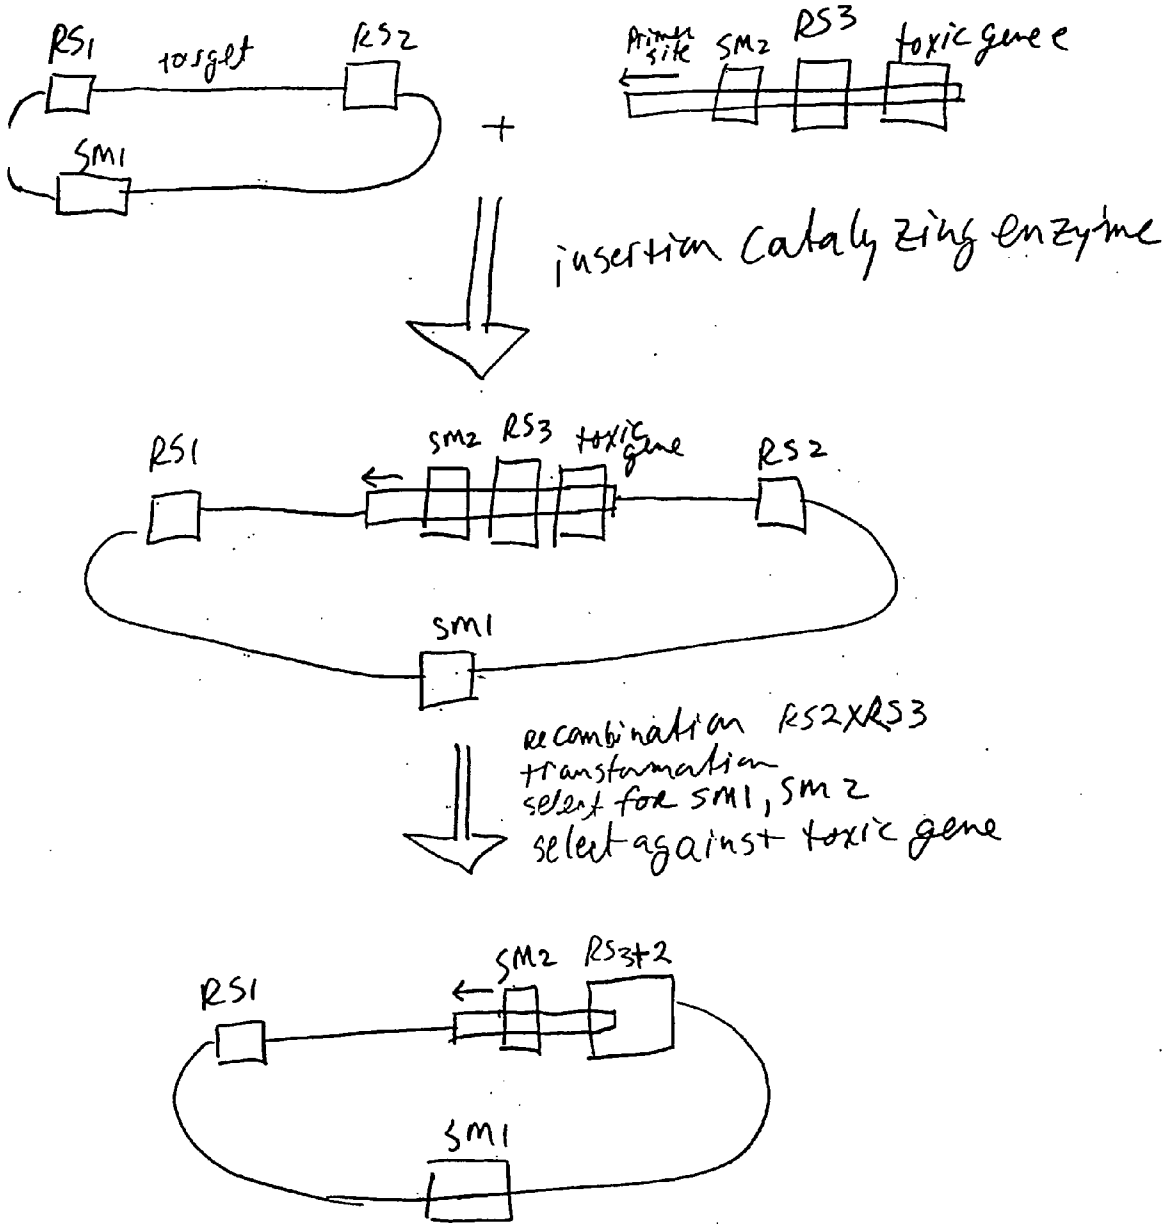 RS1
target
RS2
Primer
site
SM2
RS3
toxic gene e
SM1
+
insertion catalyzing enzyme
RS1
SM2
RS3
toxic
gene
RS2
SM1
recombination RS2XRS3
transformation
select for SM1, SM2
select against toxic gene
RS1
SM2
RS3+2
SM1